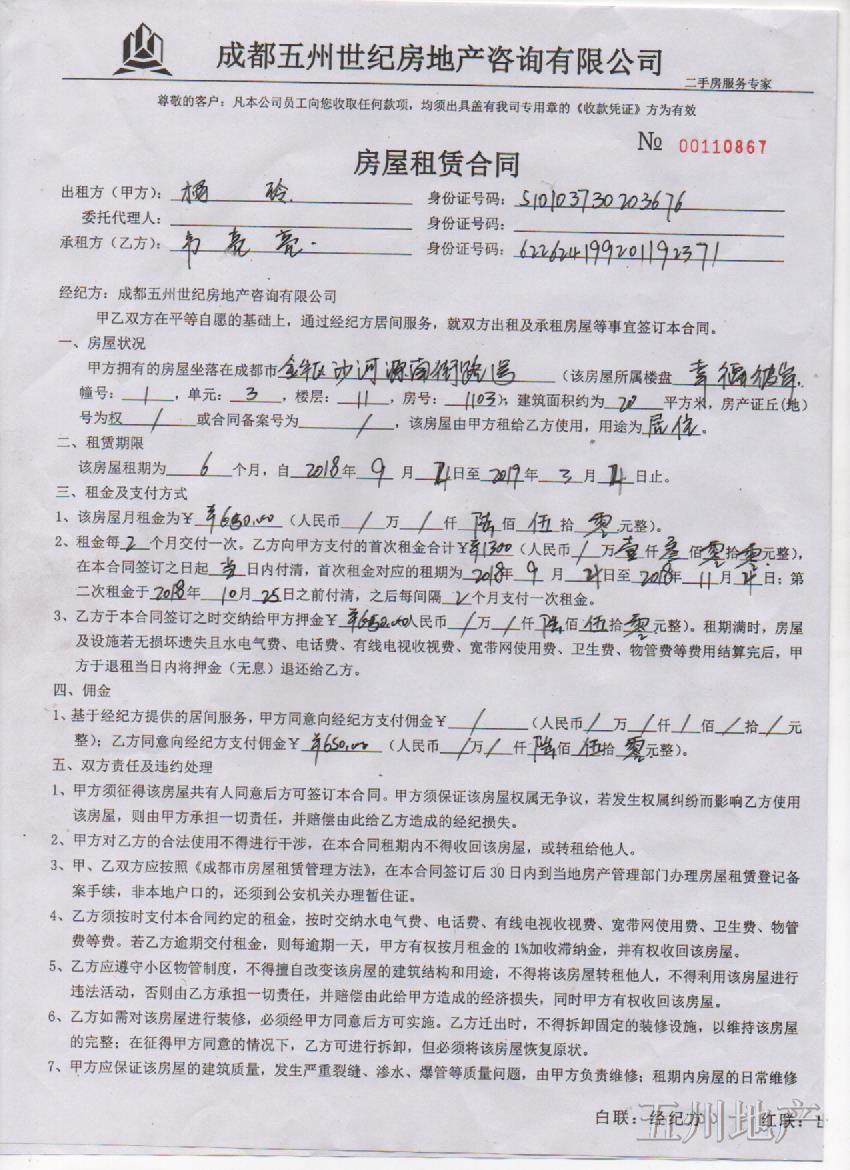 成都五州世纪房地产咨询有限公司
二手房服务专家
尊敬的客户：凡本公司员工向您收取任何款项，均须出具盖有我司专用章的《收款凭证》方为有效
№ 00110867
房屋租赁合同
出租方（甲方）：杨 玲 身份证号码：510103730203676
委托代理人： 身份证号码：
承租方（乙方）： 亮亮 身份证号码：622624199201192371
经纪方：成都五州世纪房地产咨询有限公司
甲乙双方在平等自愿的基础上，通过经纪方居间服务，就双方出租及承租房屋等事宜签订本合同。
一、房屋状况
甲方拥有的房屋坐落在成都市金牛区沙河源南街 号（该房屋所属楼盘 幸福彼岸，
幢号：1，单元：3，楼层：11，房号：1103）；建筑面积约为 20 平方米，房产证丘(地)
号为权 / 或合同备案号为 /，该房屋由甲方租给乙方使用，用途为居住。
二、租赁期限
该房屋租期为 6 个月，自 2018年 9 月 日至 2019年 3 月 日止。
三、租金及支付方式
1、该房屋月租金为￥ ￥650.00（人民币 / 万 / 仟 陆 佰 伍 拾 零 元整）。
2、租金每 2 个月交付一次。乙方向甲方支付的首次租金合计￥ ￥1300（人民币 / 万壹仟叁佰零拾零元整），
在本合同签订之日起 当 日内付清，首次租金对应的租期为 2018年 9 月 日至 2018年 11 月 日；第
二次租金于 2018年 10月 25日之前付清，之后每间隔 2个月支付一次租金。
3、乙方于本合同签订之时交纳给甲方押金￥ ￥650.00人民币 / 万 / 仟陆佰伍拾零元整）。租期满时，房屋
及设施若无损坏遗失且水电气费、电话费、有线电视收视费、宽带网使用费、卫生费、物管费等费用结算完后，甲
方于退租当日内将押金（无息）退还给乙方。
四、佣金
1、基于经纪方提供的居间服务，甲方同意向经纪方支付佣金￥ /（人民币 / 万 / 仟 / 佰 / 拾 / 元
整）；乙方同意向经纪方支付佣金￥ ￥650.00（人民币 / 万 / 仟 陆佰 伍拾 零元整）。
五、双方责任及违约处理
1、甲方须征得该房屋共有人同意后方可签订本合同。甲方须保证该房屋权属无争议，若发生权属纠纷而影响乙方使用
该房屋，则由甲方承担一切责任，并赔偿由此给乙方造成的经纪损失。
2、甲方对乙方的合法使用不得进行干涉，在本合同租期内不得收回该房屋，或转租给他人。
3、甲、乙双方应按照《成都市房屋租赁管理方法》，在本合同签订后 30 日内到当地房产管理部门办理房屋租赁登记备
案手续，非本地户口的，还须到公安机关办理暂住证。
4、乙方须按时支付本合同约定的租金，按时交纳水电气费、电话费、有线电视收视费、宽带网使用费、卫生费、物管
费等费。若乙方逾期交付租金，则每逾期一天，甲方有权按月租金的 1%加收滞纳金，并有权收回该房屋。
5、乙方应遵守小区物管制度，不得擅自改变该房屋的建筑结构和用途，不得将该房屋转租他人，不得利用该房屋进行
违法活动，否则由乙方承担一切责任，并赔偿由此给甲方造成的经济损失，同时甲方有权收回该房屋。
6、乙方如需对该房屋进行装修，必须经甲方同意后方可实施。乙方迁出时，不得拆卸固定的装修设施，以维持该房屋
的完整；在征得甲方同意的情况下，乙方可进行拆卸，但必须将该房屋恢复原状。
7、甲方应保证该房屋的建筑质量，发生严重裂缝、渗水、爆管等质量问题，由甲方负责维修；租期内房屋的日常维修
白联：经纪方 红联：
五州地产